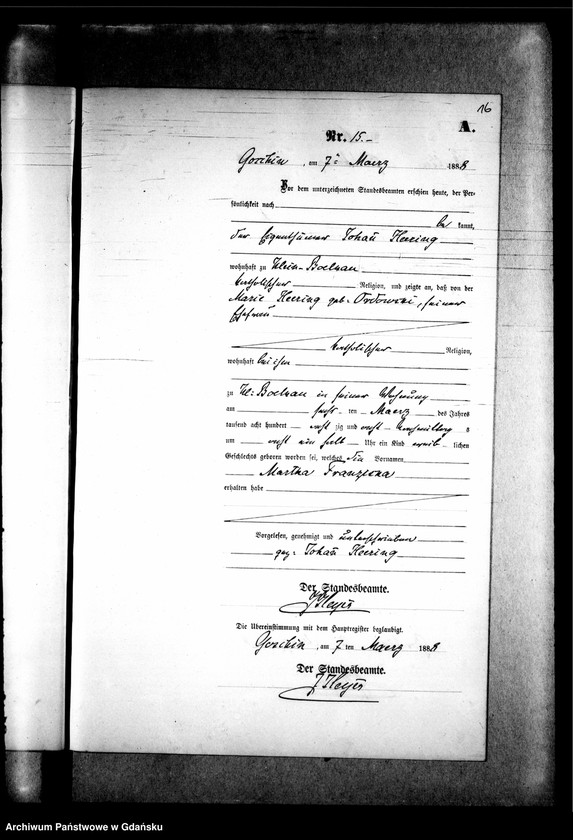 16
A.
Nr. 15.
Goschin, am 7ten Maerz 1888
Vor dem unterzeichneten Standesbeamten erschien heute, der Per-
sönlichkeit nach
be kannt,
der Eigenthümer Johañ Heering
wohnhaft zu Klein-Boelkau
katholischer Religion, und zeigte an, daß von der
Marie Heering geb: Ordowski, seiner
Ehefrau
katholischer Religion,
wohnhaft bei ihm
zu Kl: Boelkau in seiner Wohnung
am ten Maerz des Jahres
tausend acht hundert acht zig und acht Vormittag s
um acht ein halb Uhr ein Kind weib lichen
Geschlechts geboren worden sei, welches die Vornamen
Martha Franziska
erhalten habe
Vorgelesen, genehmigt und unterschrieben
gez: Johañ Heering
Der Standesbeamte.
Die Übereinstimmung mit dem Hauptregister beglaubigt.
Goschin, am 7 ten Maerz 1888
Der Standesbeamte.
Archiwum Państwowe w Gdańsku